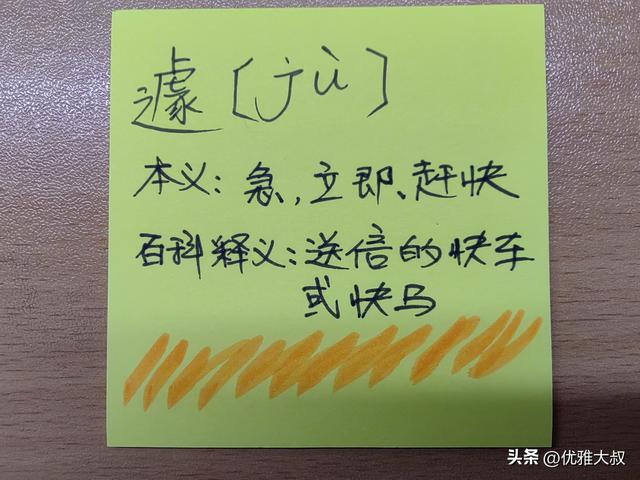 遽〔jù〕
本义：急，立即、赶快
百科释义：送信的快车
或快马
头条 @优雅大叔